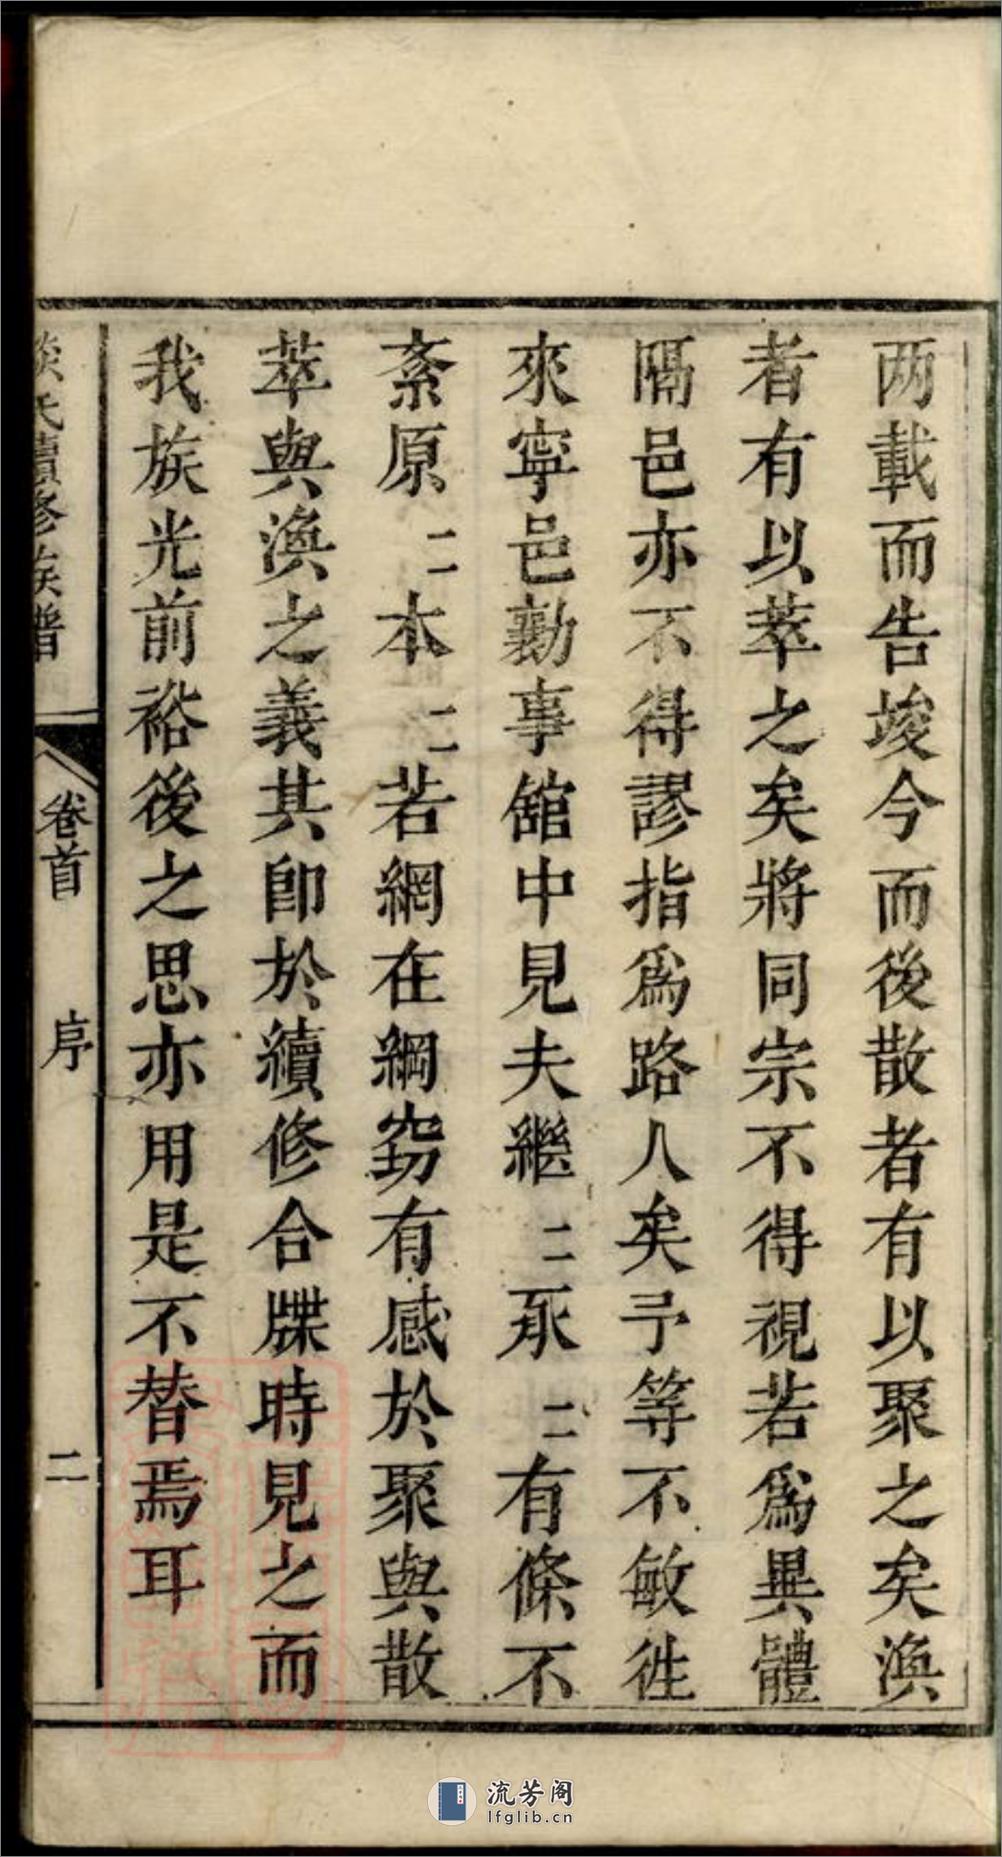 两載而告竣今而後散者有以聚之矣渙
者有以萃之矣將同宗不得視若爲異體
隔邑亦不得謬指爲路人矣予等不敏徃
來寧邑勷事舘中見夫繼二承二有條不
紊原二本二若網在綱窃有感於聚與散
萃與渙之義其卽於續修合牒時見之而
我族光前裕後之思亦用是不替焉耳
氏續修族譜
卷首
序
二
流芳阁
lfglib.cn